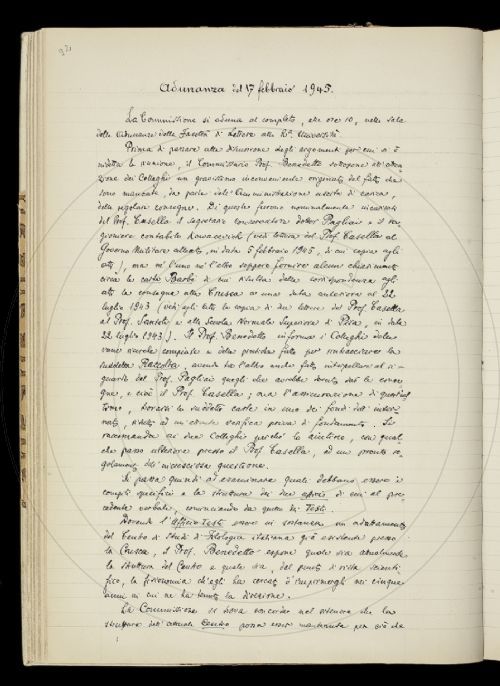 Adunanza del 17 febbraio 1945.
La Commissione si aduna al completo, alle ore 10, nella sala
delle Adunanze della Facoltà di Lettere alla R.ª Università.
Prima di passare alla discussione degli argomenti per cui si è
indetta la riunione, il Commissario Prof. Benedetto sottopone all'atten-
zione dei Colleghi un gravissimo inconveniente originato dal fatto che
sono mancate, da parte dell'Amministrazione uscita di carica,
delle regolari consegne. Di queste furono nominalmente incaricati
dal Prof. Casella il segretario conservatore dottor Pagliai e il ra-
gioniere contabile (vedi lettera del Prof. Casella al
Governo Militare alleato, in data 5 febbraio 1945, di cui copia agli
atti), ma né l'uno né l'altro seppero fornire alcun chiarimento
circa le carte Barbi di cui risulta dalla corrispondenza agli
atti la consegna alla Crusca in una data anteriore al 22
luglio 1943 (vedi agli atti la copia di due lettere del Prof. Casella
al Prof. Santoli e alla Scuola Normale Superiore di Pisa, in data
22 luglio 1943). Il Prof. Benedetto informa i Colleghi delle
varie ricerche compiute e delle pratiche fatte per rintracciare la
suddetta Raccolta, avendo tra l'altro anche fatto interpellare al ri-
guardo dal Prof. Pagliai quegli che avrebbe dovuto dar le conse-
gne, e cioè il Prof. Casella; ma l'assicurazione di quest'ul-
timo, trovarsi le suddette carte in uno dei fondi dell'
, risultò ad un'attenta verifica priva di fondamento. Si
raccomanda ai due Colleghi perché lo aiutino, con qual-
che passo ulteriore presso il Prof. Casella, ad un pronto re-
golamento dell'incresciosa questione.
Si passa quindi ad esaminare quali debbano essere i
compiti specifici e la struttura dei due uffici di cui al pre-
cedente verbale, cominciando da quello dei Testi.
Dovendo l'Ufficio Testi essere in sostanza un adattamento
del Centro di Studi di Filologia italiana già esistente presso
la Crusca, il Prof. Benedetto espone quale sia attualmente
la struttura del Centro e quale sia, dal punto di vista scienti-
fico, la fisionomia ch'egli ha cercato d'imprimergli nei cinque
anni in cui ne ha tenuto la direzione.
La Commissione si trova concorde nel ritenere che la
struttura dell'attuale Centro possa essere mantenuta per ciò che